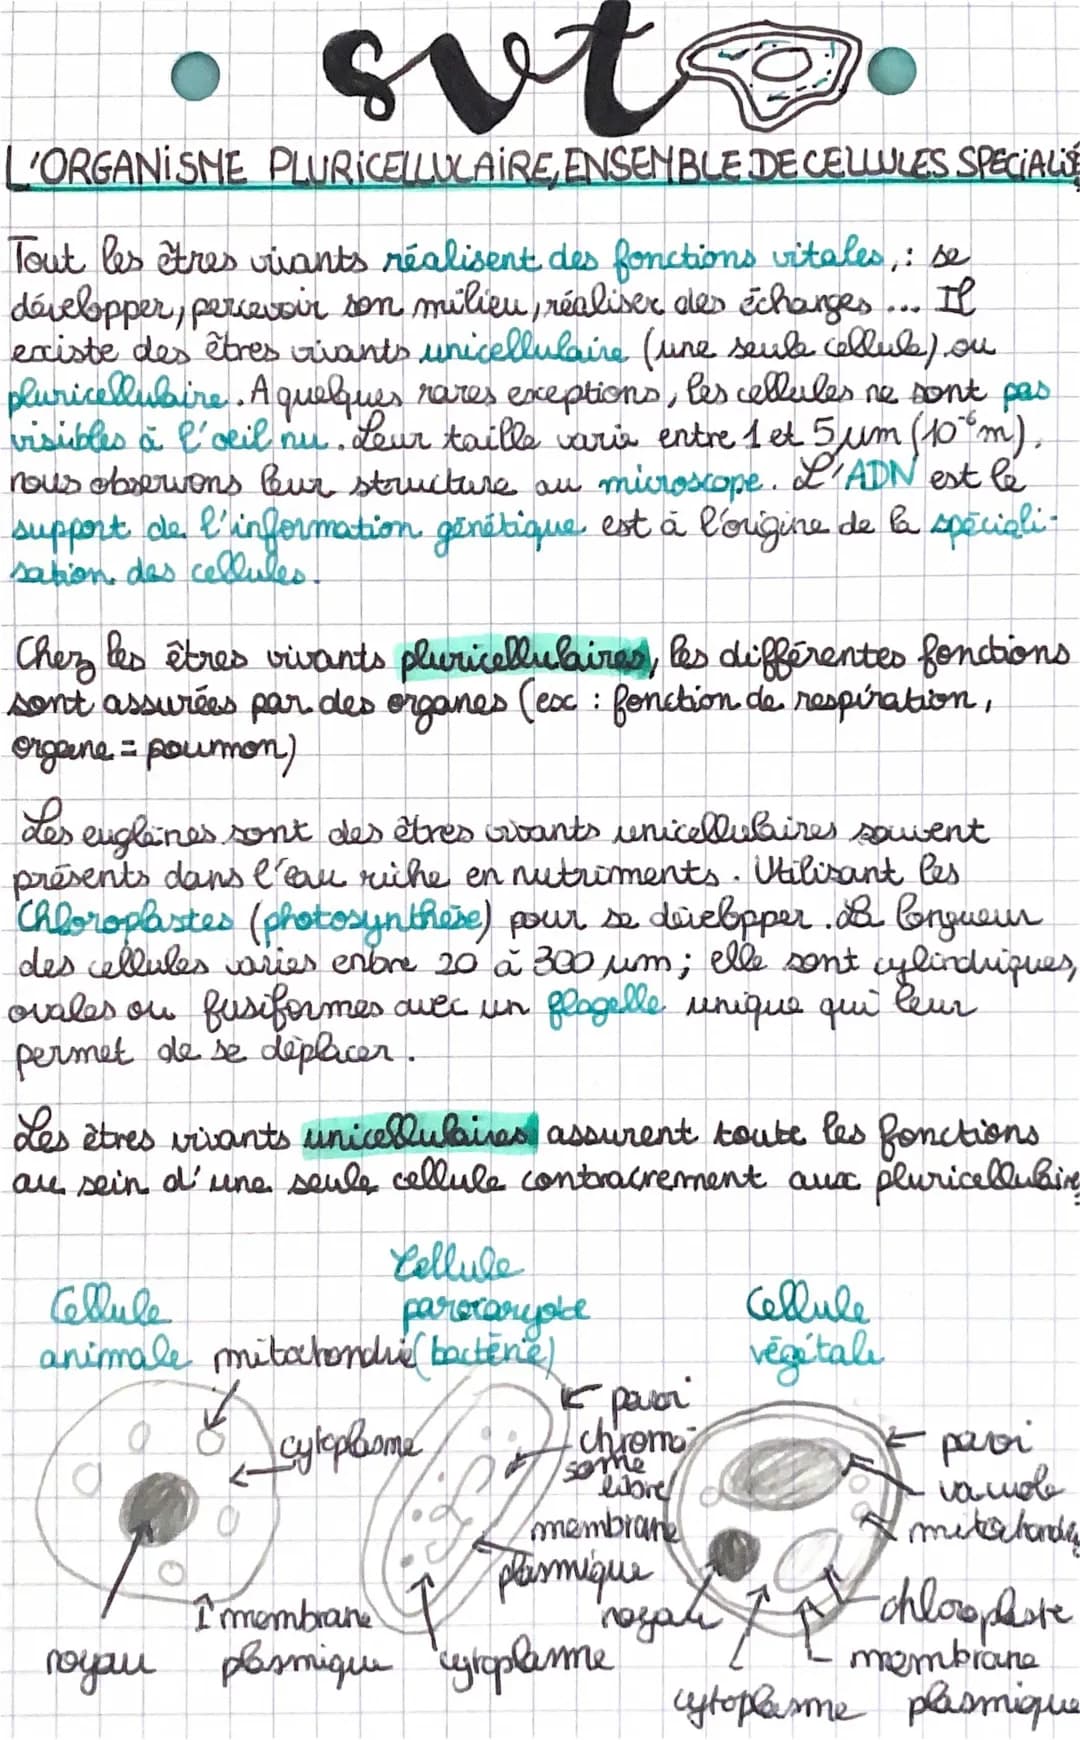 svt
L'ORGANISME PLURICELLULAIRE, ENSEMBLE DE CELLULES SPECIALISÉ
Tout les êtres vivants réalisent des fonctions vitales, : se
développer, percevoir son milieu, réaliser des échanges ... Il
existe des êtres vivants unicellulaire (une seule cellule) ou
pluricellulaire. A quelques rares exceptions, les cellules ne sont pas
visibles à l'oeil nu. Leur taille varie entre 1 et 5 µm (10⁻⁶m).
nous observons leur structure au microscope. L'ADN est le
support de l'information génétique est à l'origine de la spéciali-
sation des cellules.
Chez les êtres vivants pluricellulaires, les différentes fonctions
sont assurées par des organes (ex : fonction de respiration,
organe = poumon)
Les euglènes sont des êtres vivants unicellulaires souvent
présents dans l'eau riche en nutriments. Utilisant les
Chloroplastes (photosynthèse) pour se développer. La longueur
des cellules varies entre 20 à 300 µm; elle sont cylindriques,
ovales ou fusiformes avec un flagelle unique qui leur
permet de se déplacer.
Les êtres vivants unicellulaires assurent toute les fonctions
au sein d'une seule cellule contracrement aux pluricellulaire
Cellule
animale
mitochondrie
cytoplasme
noyau
membrane
plasmique
Cellule
parocaryote
(bactérie)
paroi
chromo
some
libre
membrane
plasmique
cytoplasme
Cellule
végétale
paroi
vacuole
mitochondrie
chloroplaste
membrane
plasmique
cytoplasme
noyau